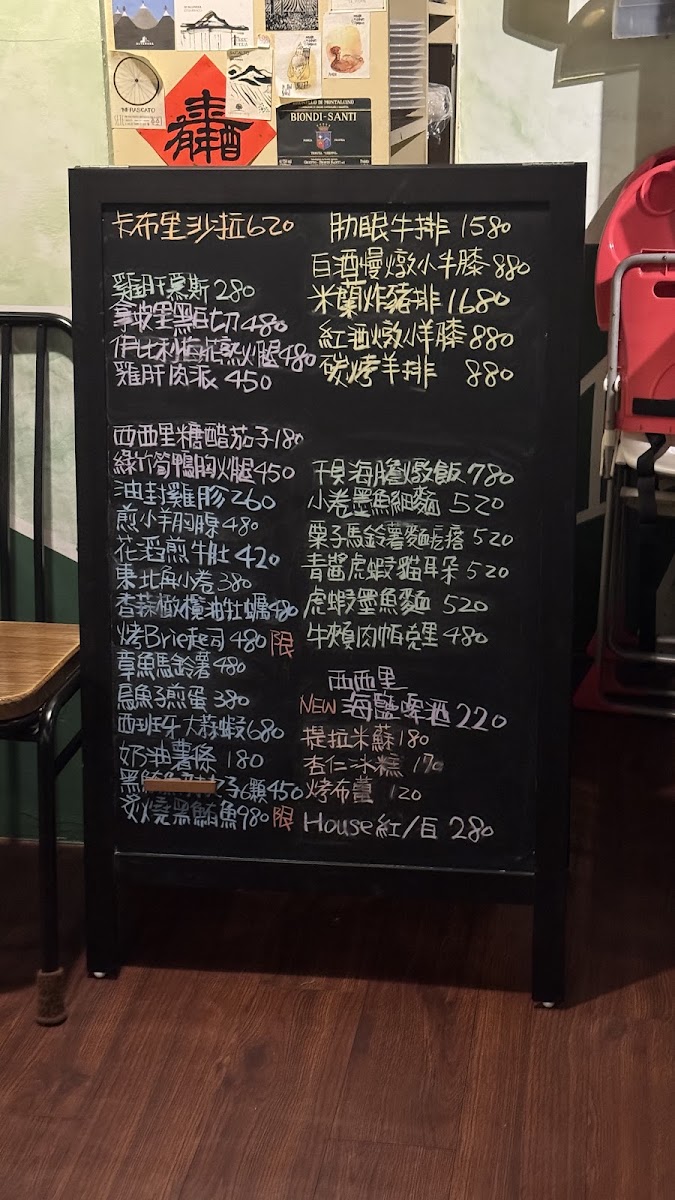 BIONDI-SANTI
卡布里沙拉620
雞肝慕斯280
拿坡里黑巨切480
火腿480
雞肝肉派 450
西西里糖醋茄子180
綠竹筍鴨胸火腿450
油封雞胗260
煎小羊胸腺480
花滔煎牛肚420
東北角小卷380
香蒜橄欖油牡蠣480
烤Brie起司480限
章魚馬鈴薯480
烏魚子煎蛋380
西班牙大蒜蝦680
奶油薯條 180
6顆450
炙燒黑鮪魚980限
肋眼牛排 1580
白酒慢燉小牛膝880
米蘭炸豬排1680
紅酒燉小羊膝880
碳烤羊排 880
干貝海膽燉飯780
小卷墨魚細麵 520
栗子馬鈴薯麵疙瘩520
青醬虎蝦貓耳朵520
虎蝦墨魚麵 520
牛頰肉帕克里480
西西里
NEW海鹽啤酒220
提拉米蘇180
杏仁冰糕 170
烤布蕾 120
House紅/白 280